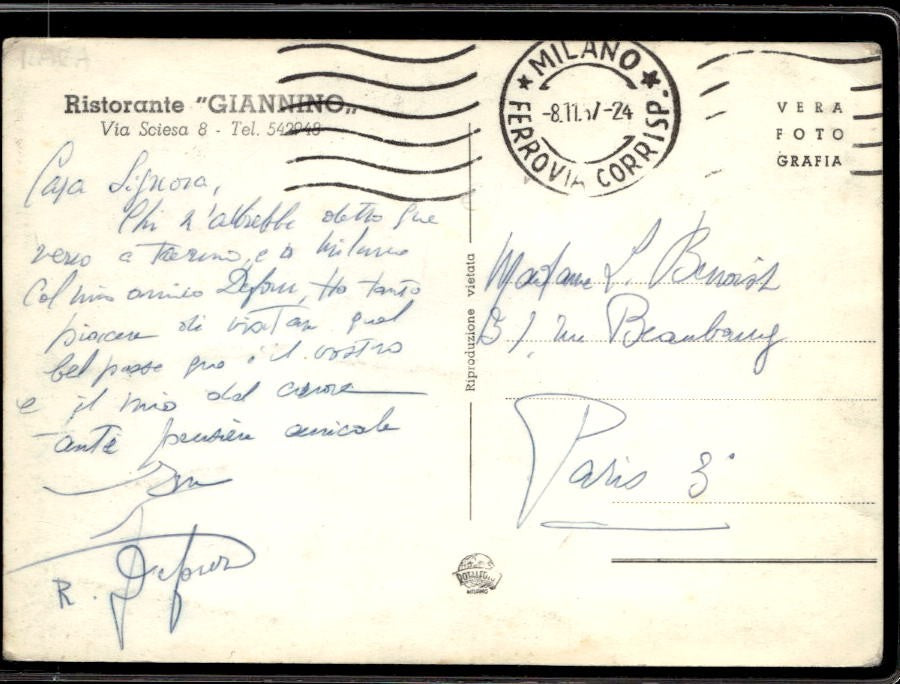 Ristorante "GIANNINO„
Via Sciesa 8 - Tel. 542948
MILANO
-8.11.57-24
FERROVIA CORRISP.
VERA
FOTO
GRAFIA
Cara Signora,
Chi l'avrebbe detto que
verso a Torino, e a Milano
Col mio amico Defour, Ho tanto
piacere di visitar quel
bel paese que è il vostro
e il mio del cuore
amicale
Riproduzione vietata
Madame L. Benoist
51, rue Beaubourg
Paris 3°
ROTALFOTO
MILANO
R.